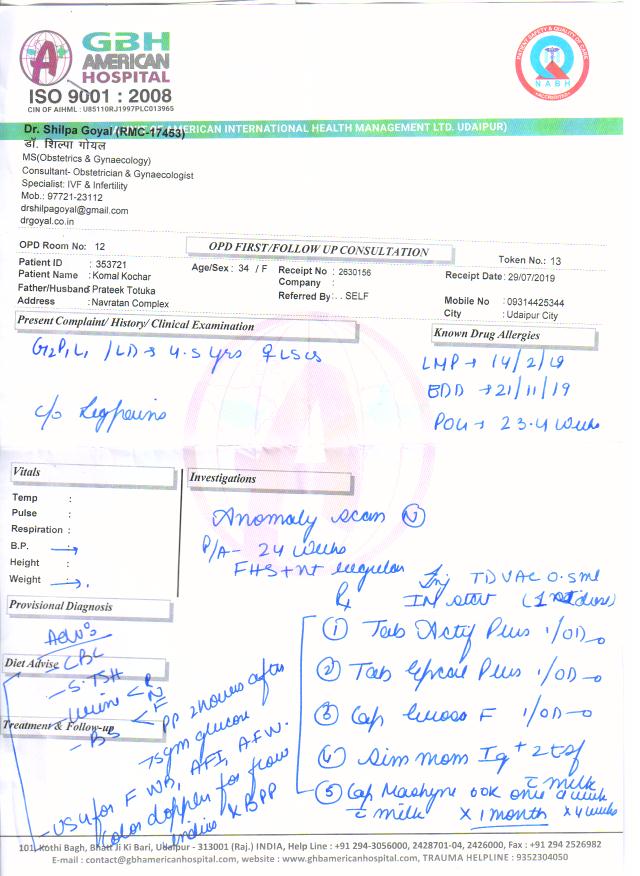 GBH
AMERICAN
HOSPITAL
ISO 9001 : 2008
CIN OF AIHML : U85110RJ1997PLC013965
PATIENT SAFETY & QUALITY OF CARE
NABH
ACCREDITED
AMERICAN INTERNATIONAL HEALTH MANAGEMENT LTD. UDAIPUR)
Dr. Shilpa Goyal (RMC-17453)
डॉ. शिल्पा गोयल
MS(Obstetrics & Gynaecology)
Consultant- Obstetrician & Gynaecologist
Specialist: IVF & Infertility
Mob.: 97721-23112
drshilpagoyal@gmail.com
drgoyal.co.in
OPD Room No: 12
OPD FIRST/FOLLOW UP CONSULTATION
Token No.: 13
Patient ID : 353721
Age/Sex : 34 / F
Receipt No : 2630156
Receipt Date: 29/07/2019
Patient Name : Komal Kochar
Company :
Father/Husband Prateek Totuka
Referred By: . SELF
Mobile No : 09314425344
Address : Navratan Complex
City : Udaipur City
Present Complaint/ History/ Clinical Examination
Known Drug Allergies
G2P1L1 /LD → 4.5 yrs ♀ LSCS
LMP → 14/2/19
EDD → 21/11/19
c/o Leg pains
POG → 23.4 weeks
Vitals
Investigations
Temp :
Pulse :
Respiration :
B.P.
Height :
Weight
Anomaly scan (N)
P/A- 24 weeks
FHS + nt regular
Rx
Inj TDVAC 0.5ml
IM stat (1st dose)
Provisional Diagnosis
Adv:
Diet Advise
CBC
- S.TSH
- Urine < R
N
Treatment & Follow-up
- BS < F
PP 2 hours after
75gm glucose
- USG for FWB, AFI, AFW.
color doppler for flow
indices x BPP
(1) Tab Actif Plus 1/OD
(2) Tab Plus 1/OD
(3) Cap F 1/OD
(4) Sim mom Iq+ 2tsf
c milk
(5) Cap 60K once a week
c milk x 1 month x 4 weeks
101, Kothi Bagh, Bhatt Ji Ki Bari, Udaipur - 313001 (Raj.) INDIA, Help Line : +91 294-3056000, 2428701-04, 2426000, Fax : +91 294 2526982
E-mail : contact@gbhamericanhospital.com, website : www.gbhamericanhospital.com, TRAUMA HELPLINE : 9352304050